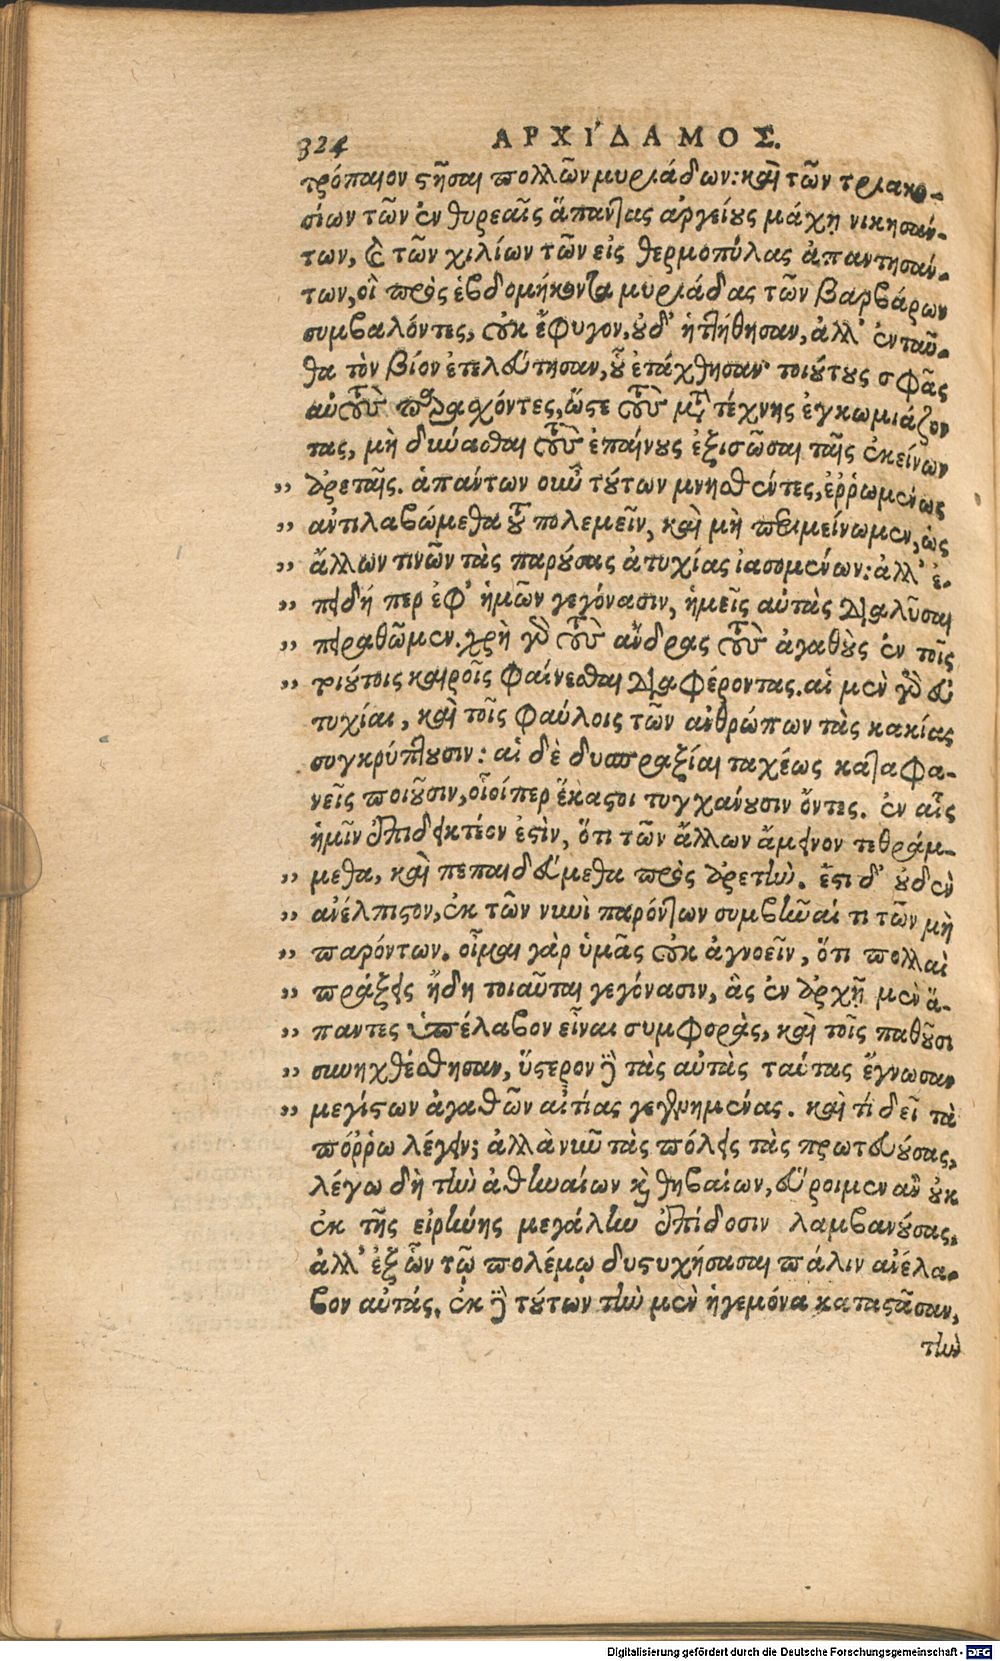 324 ΑΡΧΙΔΑΜΟΣ.
τρόπαιον στῆσαι πολλῶν μυριάδων: καὶ τῶν τριακο-
σίων τῶν ἐν θυρεαῖς ἅπαντας ἀργείους μάχῃ νικησάν-
των, καὶ τῶν χιλίων τῶν εἰς θερμοπύλας ἀπαντησάν-
των, οἳ πρὸς ἑβδομήκοντα μυριάδας τῶν βαρβάρων
συμβαλόντες, οὐκ ἔφυγον, οὐδ' ἡττήθησαν, ἀλλ' ἐνταῦ-
θα τὸν βίον ἐτελεύτησαν, οὗ ἐτάχθησαν· τοιούτους σφᾶς
αὐτοὺς παρασχόντες, ὥστε τοὺς μετὰ τέχνης ἐγκωμιάζον
τας, μὴ δύνασθαι τοὺς ἐπαίνους ἐξισῶσαι ταῖς ἐκείνων
„ ἀρεταῖς. ἁπάντων οὖν τούτων μνησθέντες, ἐῤῥωμένως
„ ἀντιλαβώμεθα τοῦ πολεμεῖν, καὶ μὴ περιμείνωμεν, ὡς
„ ἄλλων τινῶν τὰς παρούσας ἀτυχίας ἰασομένων: ἀλλ' ἐ-
„ πειδή περ ἐφ' ἡμῶν γεγόνασιν, ἡμεῖς αὐτὰς διαλῦσαι
„ πειραθῶμεν. χρὴ γὰρ τοὺς ἄνδρας τοὺς ἀγαθοὺς ἐν τοῖς
„ τοιούτοις καιροῖς φαίνεσθαι διαφέροντας. αἱ μὲν γὰρ εὐ
τυχίαι, καὶ τοῖς φαύλοις τῶν ἀνθρώπων τὰς κακίας
συγκρύπτουσιν: αἱ δὲ δυσπραξίαι ταχέως καταφα-
νεῖς ποιοῦσιν, οἷοίπερ ἕκαστοι τυγχάνουσιν ὄντες. ἐν αἷς
ἡμῖν ἐπιδεικτέον ἐστὶν, ὅτι τῶν ἄλλων ἄμεινον τεθράμ-
„ μεθα, καὶ πεπαιδεύμεθα πρὸς ἀρετὴν. ἔστι δ' οὐδὲν
„ ἀνέλπιστον, ἐκ τῶν νυνὶ παρόντων συμβῆναί τι τῶν μὴ
„ παρόντων. οἶμαι γὰρ ὑμᾶς οὐκ ἀγνοεῖν, ὅτι πολλαὶ
„ πράξεις ἤδη τοιαῦται γεγόνασιν, ἃς ἐν ἀρχῇ μὲν ἅ-
„ παντες ὑπέλαβον εἶναι συμφορὰς, καὶ τοῖς παθοῦσι
„ συνηχθέσθησαν, ὕστερον δὲ τὰς αὐτὰς ταύτας ἔγνωσαν
„ μεγίστων ἀγαθῶν αἰτίας γεγενημένας. καὶ τί δεῖ τὰ
πόῤῥω λέγειν; ἀλλὰ νῦν τὰς πόλεις τὰς πρωτευούσας,
λέγω δὴ τὴν ἀθηναίων καὶ θηβαίων, εὕροιμεν ἂν οὐκ
ἐκ τῆς εἰρήνης μεγάλην ἐπίδοσιν λαμβανούσας,
ἀλλ' ἐξ ὧν τῷ πολέμῳ δυστυχήσασαι πάλιν ἀνέλα-
βον αὐτάς. ἐκ δὲ τούτων τὴν μὲν ἡγεμόνα καταστᾶσαν,
τὴν
Digitalisierung gefördert durch die Deutsche Forschungsgemeinschaft - DFG